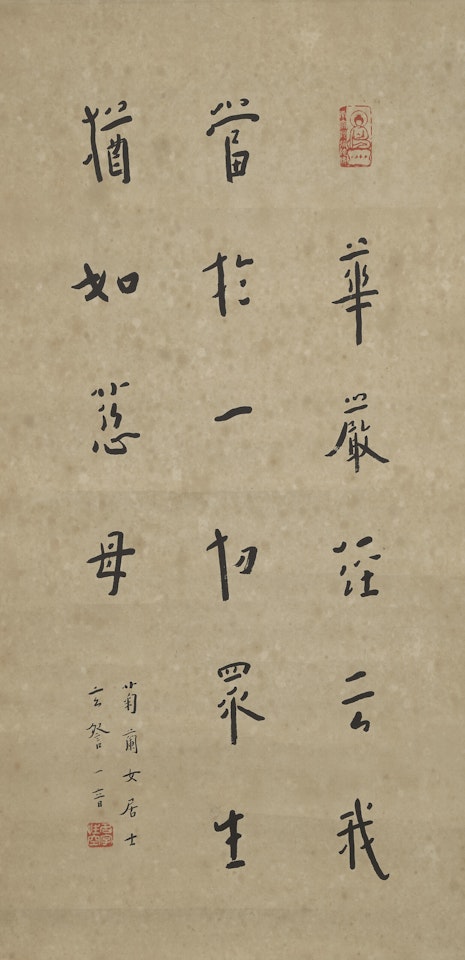 華嚴經云我
當於一切眾生
猶如慈母
菊蘭女居士
玄 一音